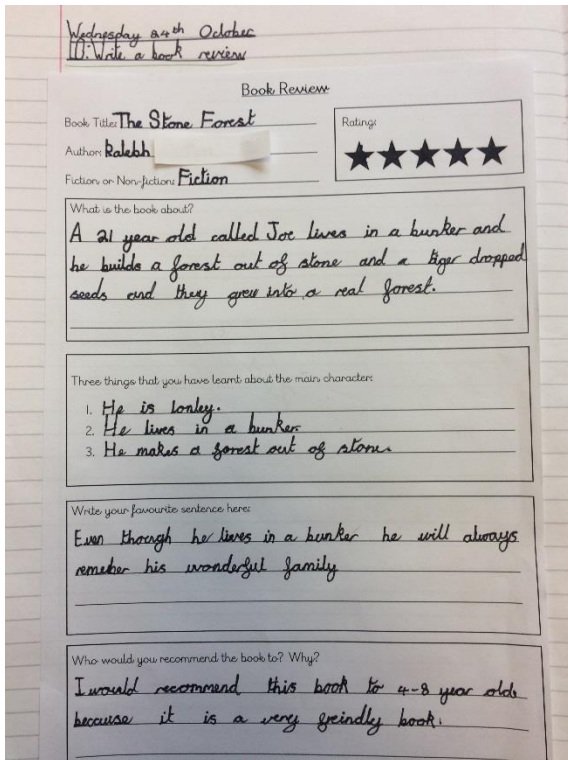 Wednesday 24th October
LO: Write a book review
Book Review
Book Title: The Stone Forest
Rating:
Author: Kalebh
Fiction or Non-fiction: Fiction
What is the book about?
A 21 year old called Joe lives in a bunker and
he builds a forest out of stone and a tiger dropped
seeds and they grew into a real forest.
Three things that you have learnt about the main character:
1. He is lonley.
2. He lives in a bunker.
3. He makes a forest out of stone.
Write your favourite sentence here:
Even though he lives in a bunker he will always
remeber his wonderful family
Who would you recommend the book to? Why?
I would recommend this book to 4-8 year olds
because it is a very freindly book.